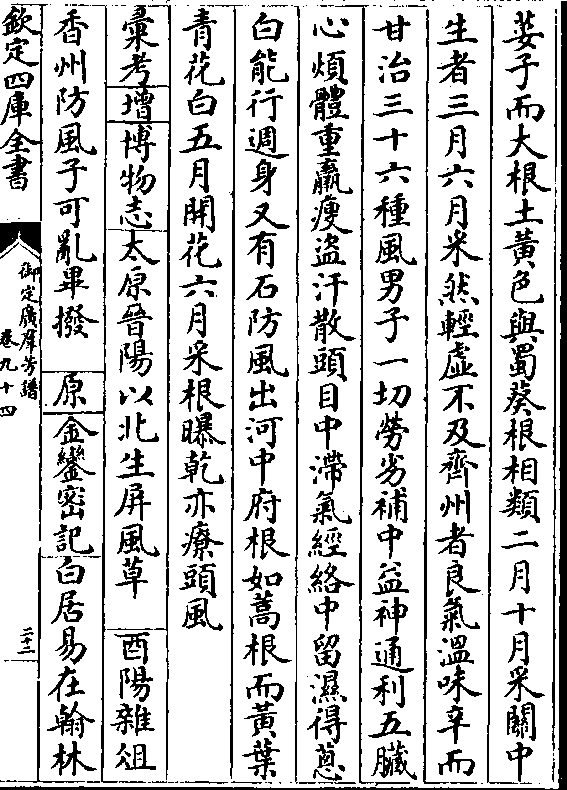 荽子而大根土黃色與蜀葵根相類二月十月采關中
生者三月六月采然輕虛不及齊州者良氣溫味辛而
甘治三十六種風男子一切勞劣補中益神通利五臟
心煩體重羸瘦盜汗散頭目中滯氣經絡中留濕得蔥
白能行週身又有石防風出河中府根如蒿根而黃葉
青花白五月開花六月采根曝乾亦療頭風
彙考增博物志太原晉陽以北生屏風草 酉陽雜俎
香州防風子可亂畢撥 原金鑾密記白居易在翰林
欽定四庫全書
御定廣羣芳譜
卷九十四
二十二